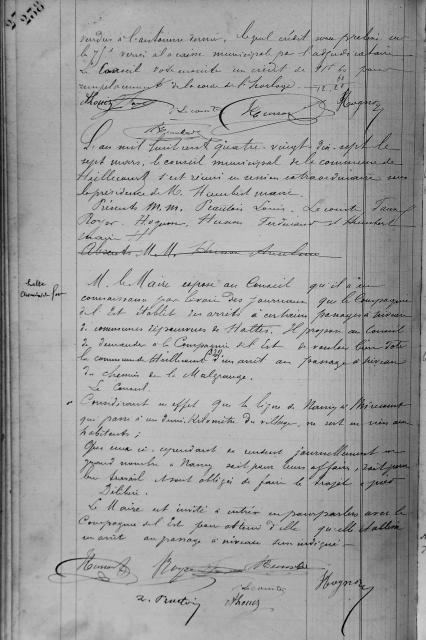 238
vendus à l'automne dernier, lequel crédit sera prélevé sur
le versé à la caisse municipale par l'adjudicataire
Le Conseil vote ensuite un crédit de pour
remplacement de la corde de l'horloge
Lecomte
Hognon
L'an mil huit cent quatre-vingt dix-sept le
sept mars, le conseil municipal de la commune de
Heillecourt s'est réuni en session extraordinaire sous
la présidence de M. Humbert maire.
Présents M.M. Louis, Lecomte
Royer, Hognon, Ferdinand et Humbert
maire
Absents M.M.
halte
M. le Maire expose au Conseil qu'il a eu
connaissance par la voie des journaux que la Compagnie
de l'Est établit des arrêts à certains passages à niveau
de communes dépourvues de Haltes. Il propose au Conseil
de demander à la Compagnie de l'Est de vouloir bien doter
la commune d'Heillecourt d'un arrêt au passage à niveau
du chemin de la Malgrange.
Le Conseil
Considérant en effet que la ligne de Nancy à Mirecourt
qui passe à un demi-kilomètre du village, ne sert en rien aux
habitants;
Que ceux-ci cependant se rendent journellement en
grand nombre à Nancy soit pour leurs affaires, soit pour
leur travail et sont obligés de faire le trajet à pied
Délibère
Le Maire est invité à entrer en pourparlers avec la
Compagnie de l'Est pour obtenir d'elle qu'elle établisse
un arrêt au passage à niveau sus-indiqué
Royer
Lecomte
Hognon